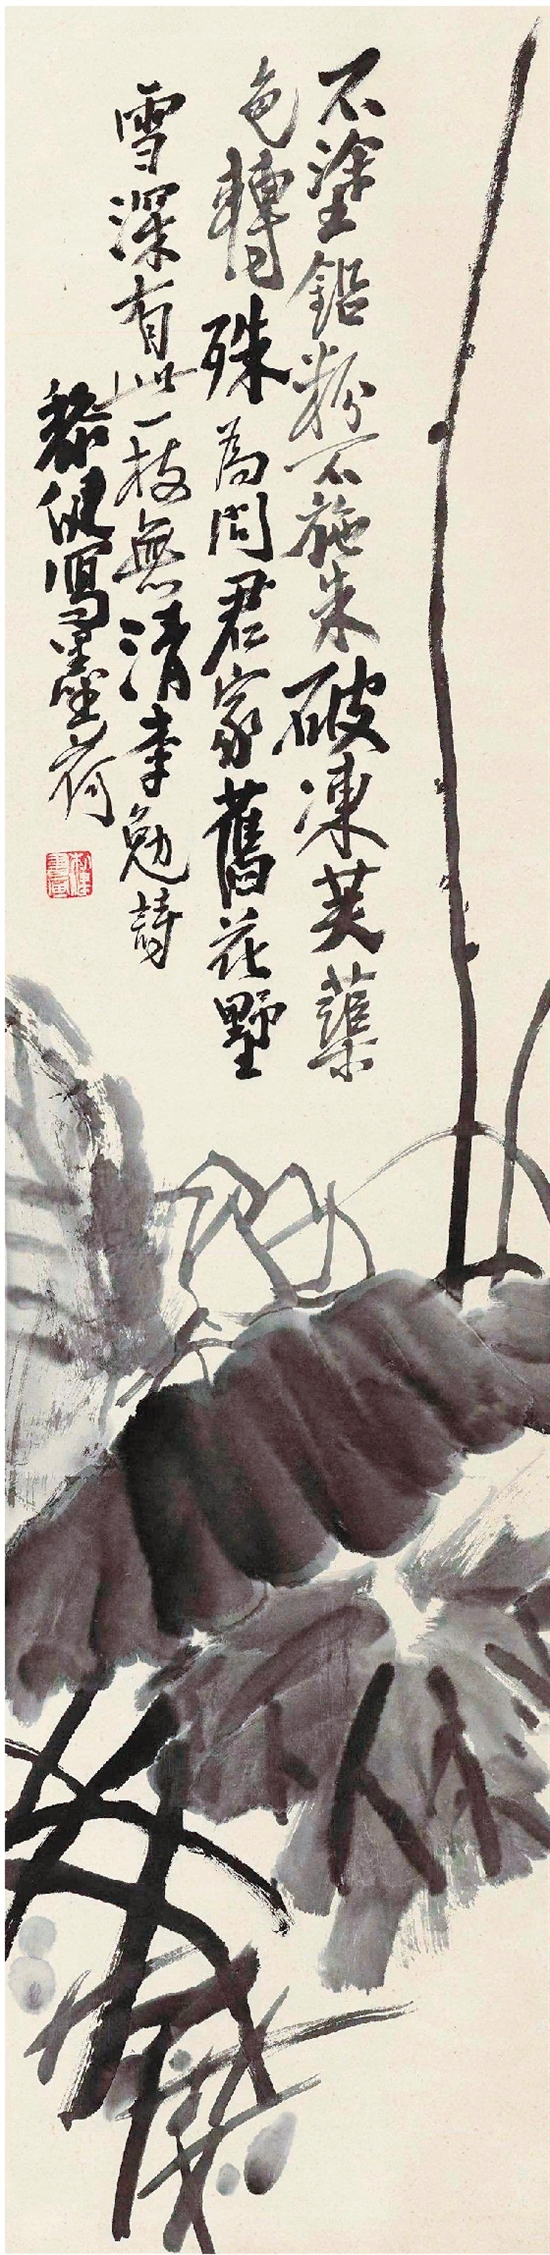 不塗鉛粉不施朱破凍芙蕖
色轉殊為問君家舊花墅
雪深有此一枝無清李勉詩
黎健寫墨荷